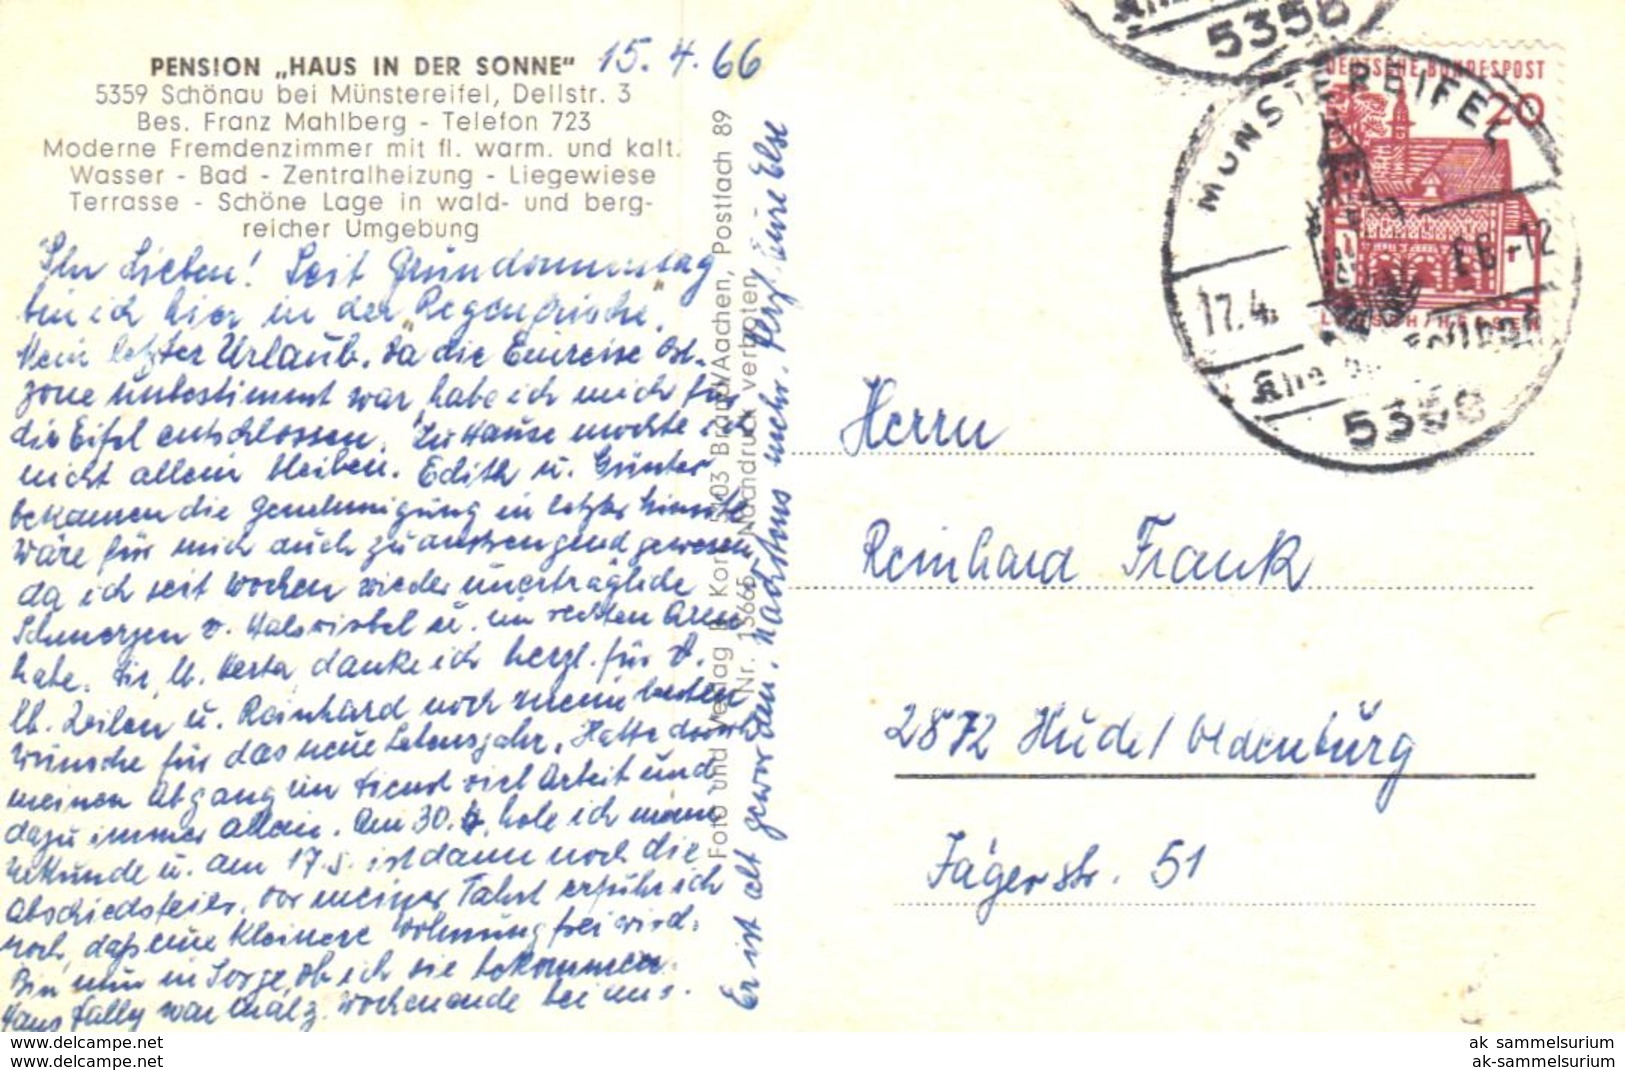 PENSION „HAUS IN DER SONNE"
5359 Schönau bei Münstereifel, Dellstr. 3
Bes. Franz Mahlberg - Telefon 723
Moderne Fremdenzimmer mit fl. warm. und kalt.
Wasser - Bad - Zentralheizung - Liegewiese
Terrasse - Schöne Lage in wald- und berg-
reicher Umgebung
15. 4. 66
Ihr Lieben! Seit Gründonnerstag
bin ich hier in der "Regenfrische".
Mein letzter Urlaub. Da die Einreise Ost-
zone unbestimmt war, habe ich mich für
die Eifel entschlossen. Zu Hause mochte ich
nicht allein bleiben. Edith u. Günter
bekamen die Genehmigung in letzter Minute
Wäre für mich auch zu anstrengend gewesen,
da ich seit Wochen wieder unerträgliche
Schmerzen v. Halswirbel u. im rechten Arm
habe. Dir, lb. Herta, danke ich herzl. für d.
lb. Zeilen u. Reinhard noch meine besten
Wünsche für das neue Lebensjahr. Hatte durch
meinen Abgang im Dienst viel Arbeit und
dazu immer allein. Am 30.4. hole ich meine
Urkunde u. am 17.5. ist dann noch die
Abschiedsfeier. Vor meiner Fahrt erfuhr ich
noch, daß eine kleinere Wohnung frei wird.
Bin nun in Sorge, ob ich sie bekomme.
Hans war Wochenende bei uns.
Er ist alt geworden. Nächstens mehr. Herzl. Eure Else
Foto und Verlag B. Korr, 5103 Brand/Aachen, Postfach 89
Nr. 13665 Nachdruck verboten
5358
DEUTSCHE BUNDESPOST
20
LORSCH/HESSEN
MÜNSTEREIFEL
17.4. 66-12
5358
Herrn
Reinhard Frank
2872 Hude / Oldenburg
Jägerstr. 51
www.delcampe.net
www.delcampe.net
ak_sammelsurium
ak-sammelsurium